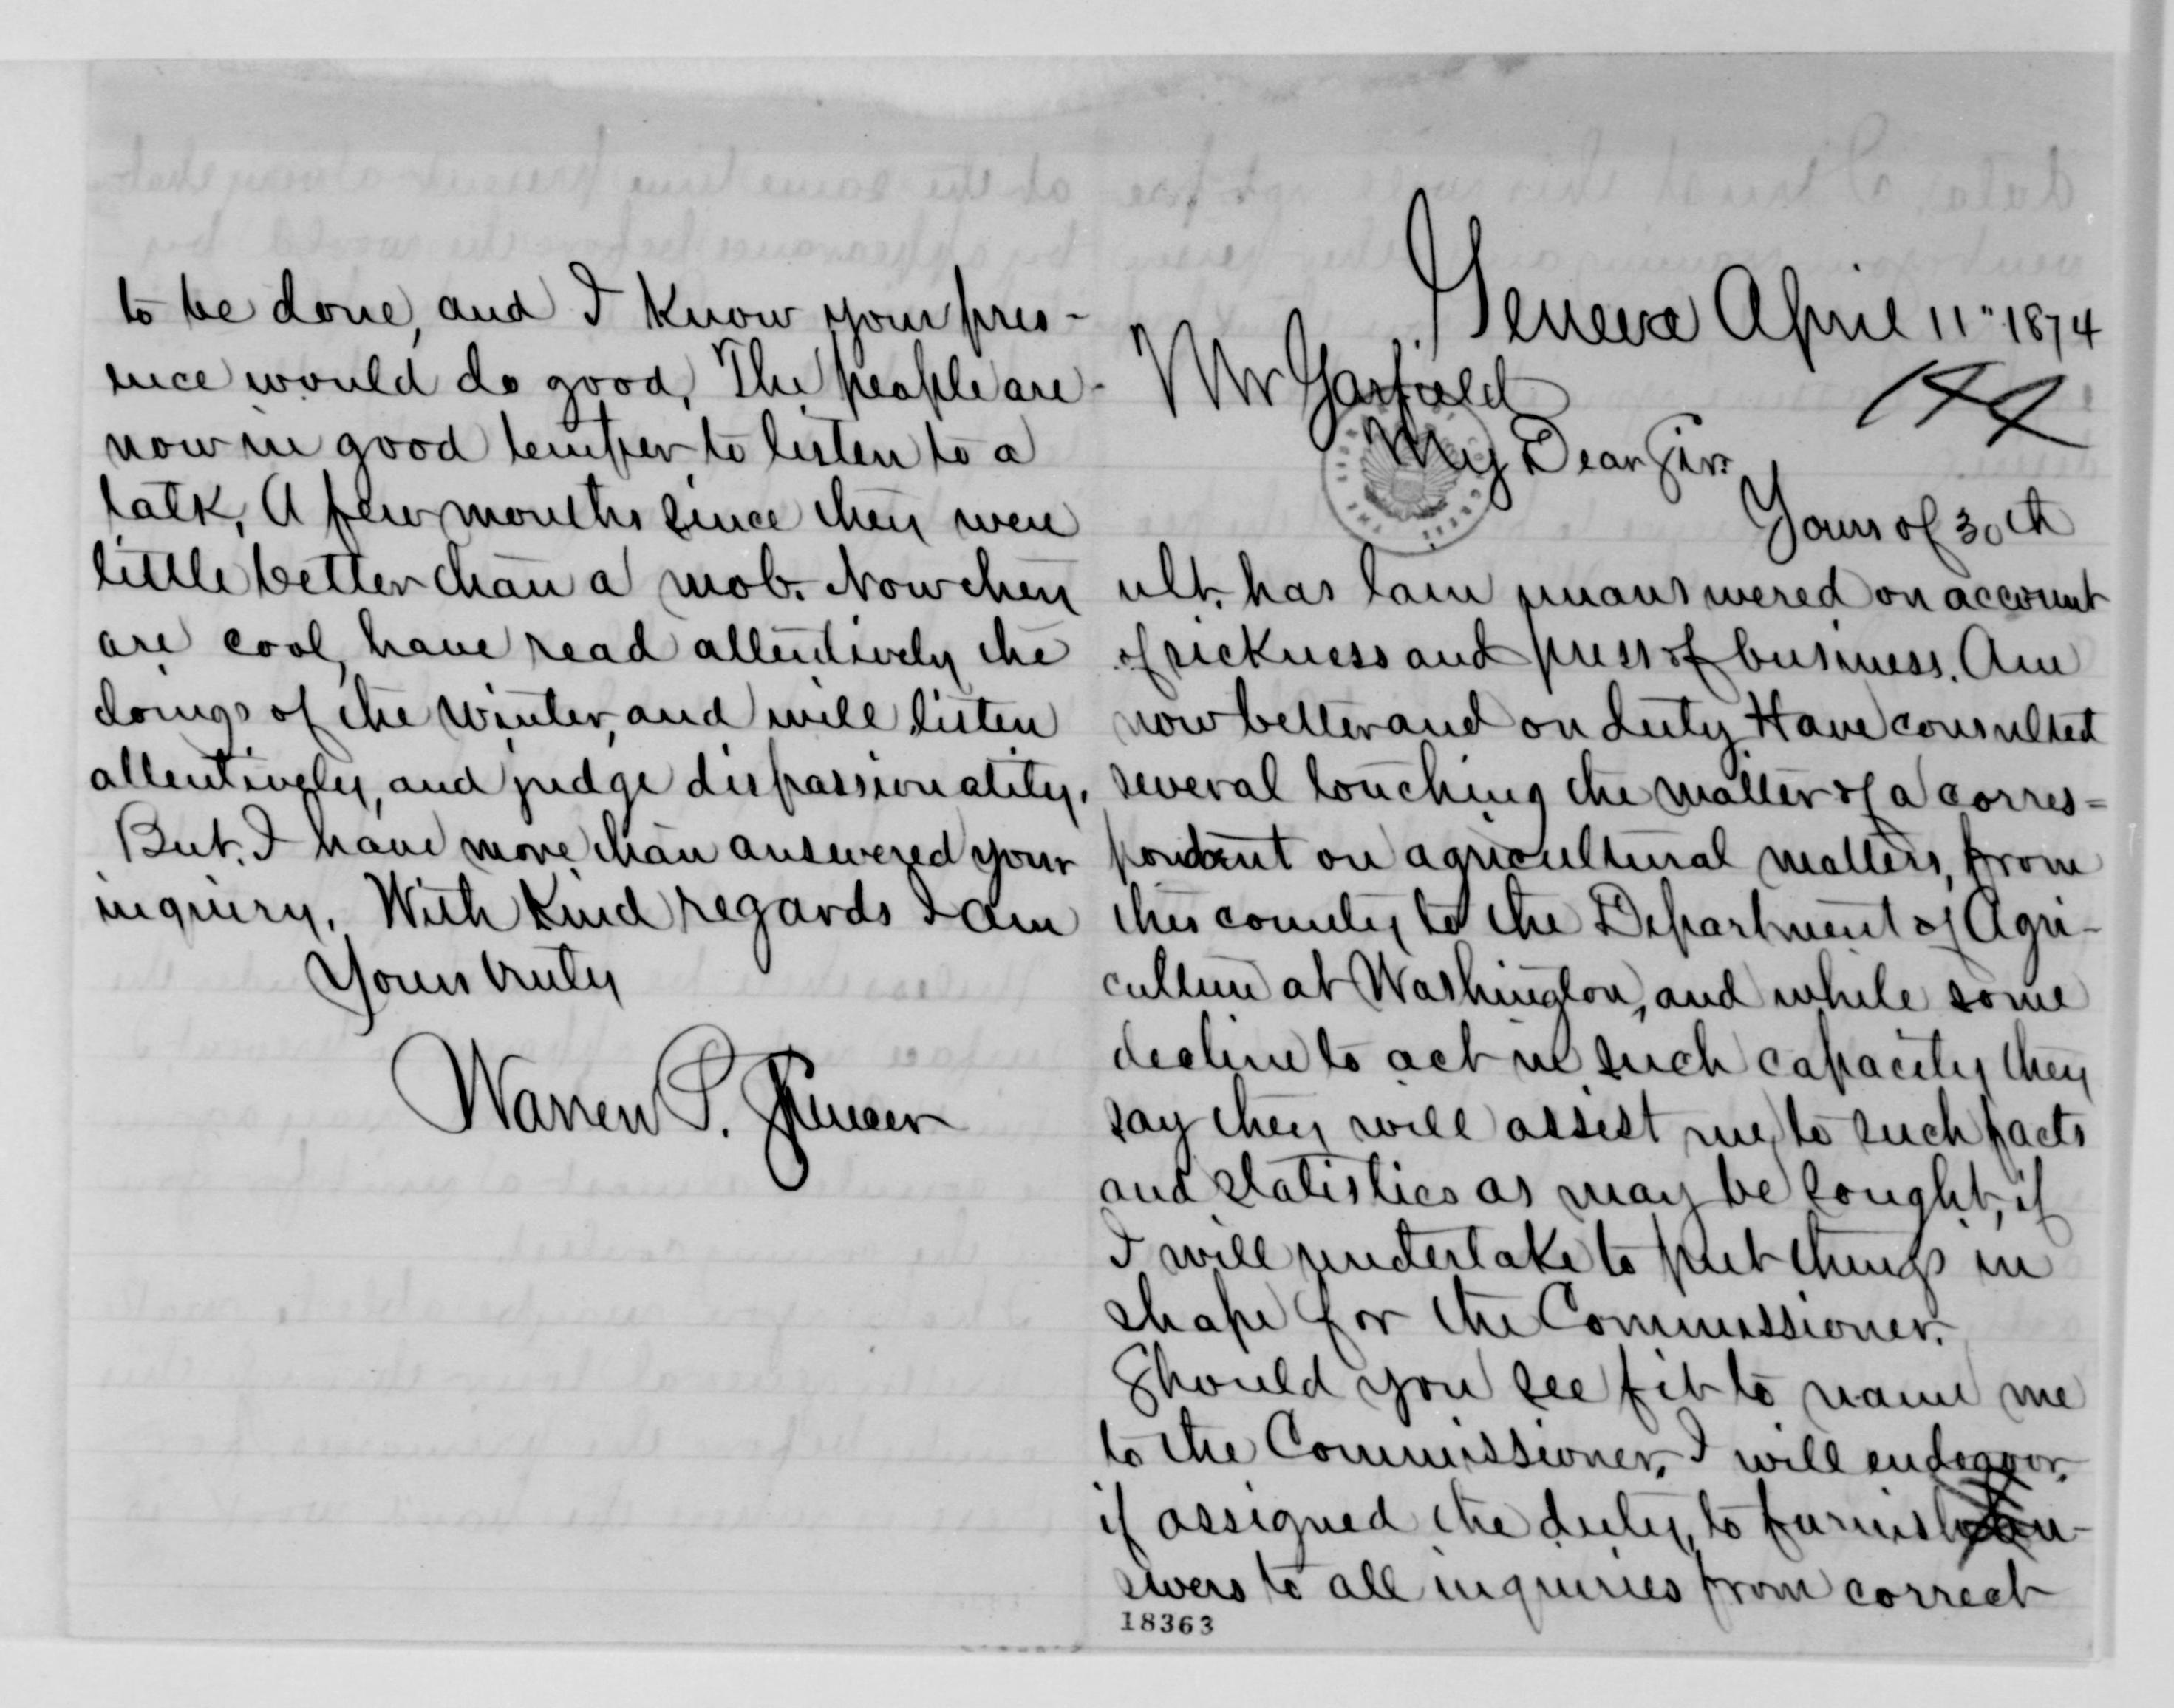 to be done, and I know your pres-
ence would do good. The people are
now in good temper to listen to a
talk. A few months since they were
little better than a mob. Now they
are cool, have read attentively the
doings of the winter, and will listen
attentively, and judge dispassionately.
But I have more than answered your
inquiry. With kind regards I am
Yours truly
Warren P. Spencer
Geneva April 11" 1874
Mr Garfield
My Dear Sir
Yours of 30th
ult. has lain unanswered on account
of sickness and press of business. Am
now better and on duty. Have consulted
several touching the matter of a corres=
pondent on agricultural matters, from
this county to the Department of Agri-
culture at Washington, and while some
decline to act in such capacity they
say they will assist me to such facts
and statistics as may be sought, if
I will undertake to put things in
shape for the Commissioner.
Should you see fit to name me
to the Commissioner, I will endeavor,
if assigned the duty, to furnish an-
swers to all inquiries from correct
18363